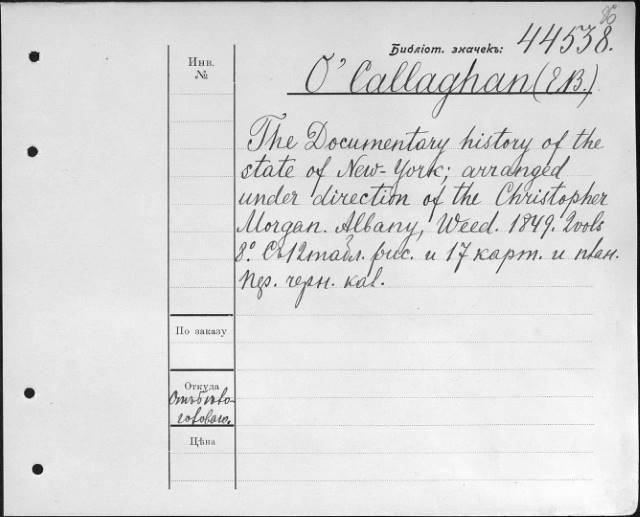 86
Библіот. значекъ: 44538.
Инв.
№
O'Callaghan (E.B.)
The Documentary history of the
state of New-York; arranged
under direction of the Christopher
Morgan. Albany, Weed. 1849. 2vols
8º. Съ 12 табл. рис. и 17 карт. и план.
черн. кал.
По заказу
Откуда
Цѣна